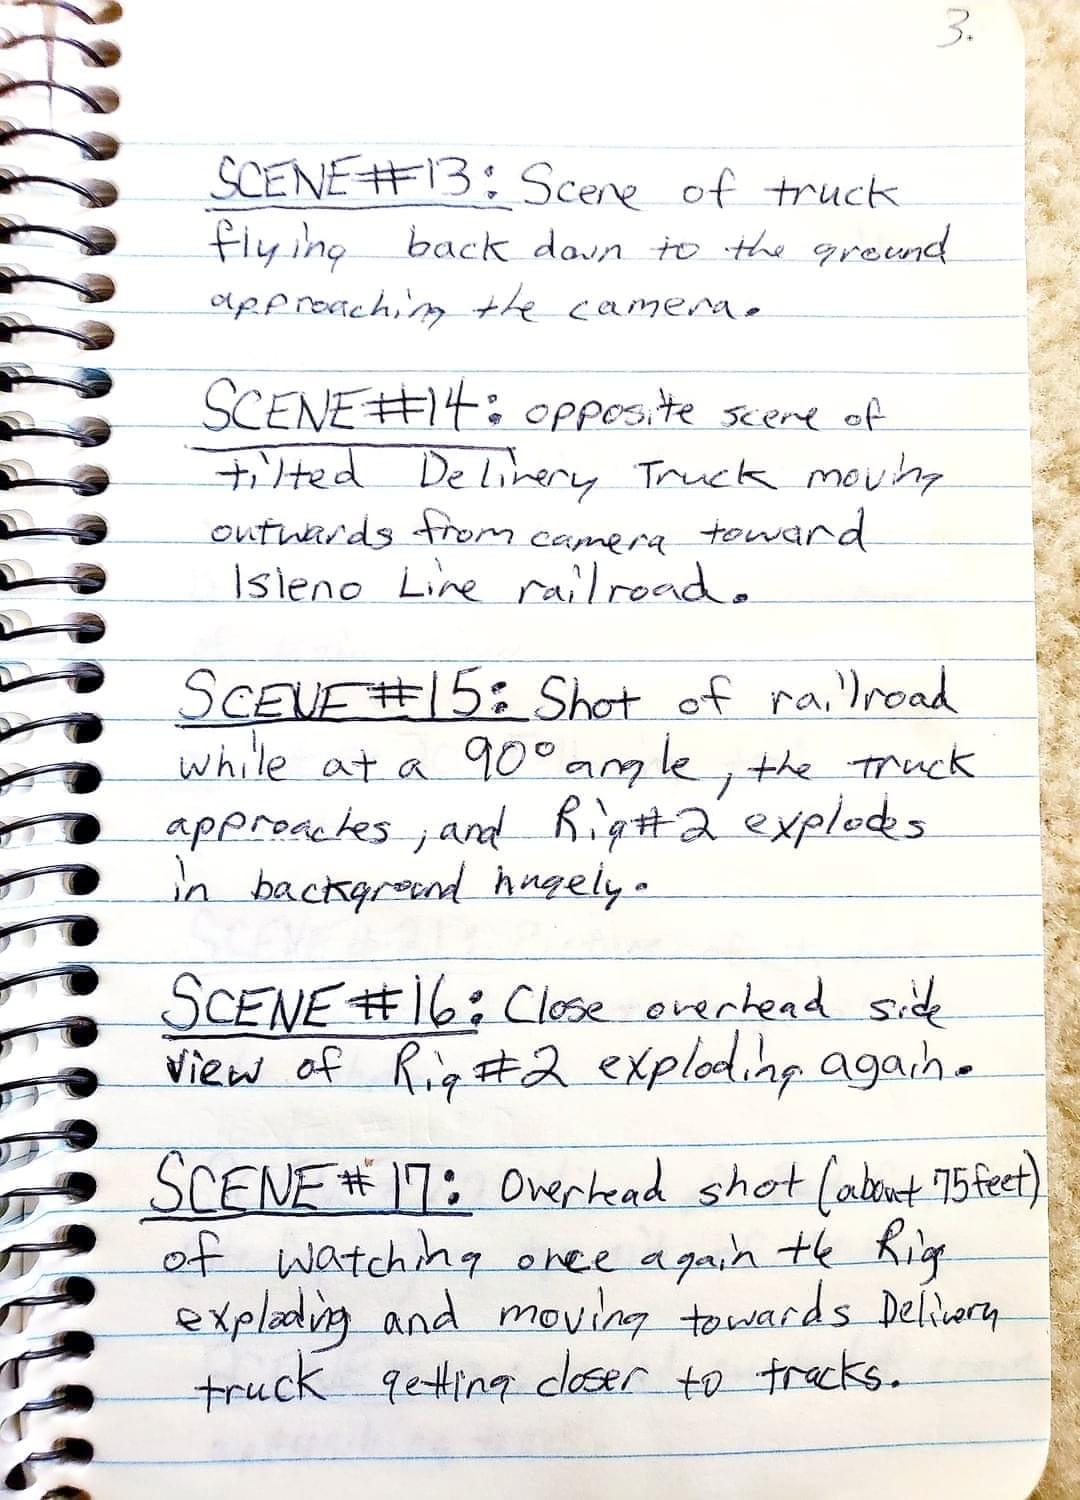 3.
SCENE#13: Scene of truck
flying back down to the ground
approaching the camera.
SCENE#14: opposite scene of
tilted Delivery Truck moving
outwards from camera toward
Isleno Line railroad.
SCENE#15: Shot of railroad
while at a 90° angle, the truck
approaches, and Rig#2 explodes
in background hugely.
SCENE#16: Close overhead side
view of Rig#2 exploding again.
SCENE#17: Overhead shot (about 75 feet)
of watching once again the Rig
exploding and moving towards Delivery
truck getting closer to tracks.